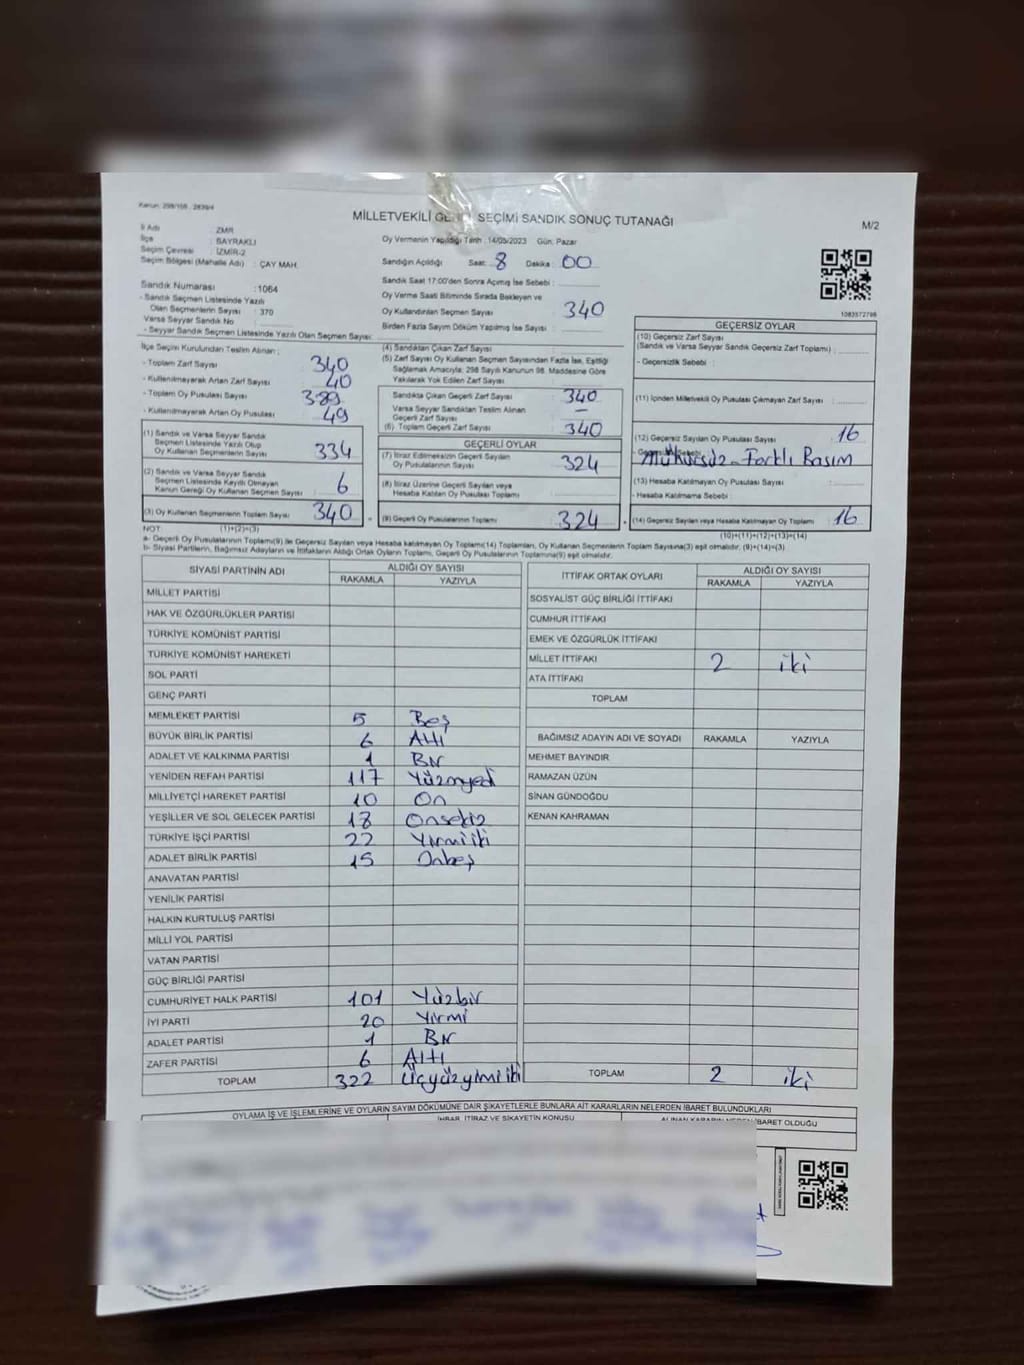 Kanun: 298/105 , 2839/4
MİLLETVEKİLİ GE SEÇİMİ SANDIK SONUÇ TUTANAĞI
M/2
İl Adı : ZMR
İlçe : BAYRAKLI
Seçim Çevresi : İZMİR-2
Seçim Bölgesi (Mahalle Adı) : ÇAY MAH.
Oy Vermenin Yapıldığı Tarih : 14/05/2023 Gün: Pazar
Sandığın Açıldığı Saat: 8 Dakika : 00
Sandık Saat 17:00'den Sonra Açılmış İse Sebebi :
Sandık Numarası : 1064
- Sandık Seçmen Listesinde Yazılı
Olan Seçmenlerin Sayısı : 370
Varsa Seyyar Sandık No
- Seyyar Sandık Seçmen Listesinde Yazılı Olan Seçmen Sayısı:
Oy Verme Saati Bitiminde Sırada Bekleyen ve
Oy Kullandırılan Seçmen Sayısı : 340
Birden Fazla Sayım Döküm Yapılmış İse Sayısı :
1083572798
İlçe Seçim Kurulundan Teslim Alınan :
- Toplam Zarf Sayısı 340
- Kullanılmayarak Artan Zarf Sayısı 40
- Toplam Oy Pusulası Sayısı 389
- Kullanılmayarak Artan Oy Pusulası 49
(1) Sandık ve Varsa Seyyar Sandık
Seçmen Listesinde Yazılı Olup
Oy Kullanan Seçmenlerin Sayısı 334
(2) Sandık ve Varsa Seyyar Sandık
Seçmen Listesinde Kayıtlı Olmayan
Kanun Gereği Oy Kullanan Seçmen Sayısı 6
(3) Oy Kullanan Seçmenlerin Toplam Sayısı 340
(1)+(2)=(3)
(4) Sandıktan Çıkan Zarf Sayısı :
(5) Zarf Sayısı Oy Kullanan Seçmen Sayısından Fazla İse, Eşitliği
Sağlamak Amacıyla; 298 Sayılı Kanunun 98. Maddesine Göre
Yakılarak Yok Edilen Zarf Sayısı :
Sandıkta Çıkan Geçerli Zarf Sayısı : 340
Varsa Seyyar Sandıktan Teslim Alınan
Geçerli Zarf Sayısı : —
(6) Toplam Geçerli Zarf Sayısı : 340
GEÇERLİ OYLAR
(7) İtiraz Edilmeksizin Geçerli Sayılan
Oy Pusulalarının Sayısı : 324
(8) İtiraz Üzerine Geçerli Sayılan veya
Hesaba Katılan Oy Pusulası Toplamı :
= (9) Geçerli Oy Pusulalarının Toplamı : 324
GEÇERSİZ OYLAR
(10) Geçersiz Zarf Sayısı
(Sandık ve Varsa Seyyar Sandık Geçersiz Zarf Toplamı) :
- Geçersizlik Sebebi :
(11) İçinden Milletvekili Oy Pusulası Çıkmayan Zarf Sayısı :
(12) Geçersiz Sayılan Oy Pusulası Sayısı : 16
- Geçersizlik Sebebi : Mühürsüz - Farklı Basım
(13) Hesaba Katılmayan Oy Pusulası Sayısı :
- Hesaba Katılmama Sebebi :
+ (14) Geçersiz Sayılan veya Hesaba Katılmayan Oy Toplamı : 16
(10)+(11)+(12)+(13)=(14)
NOT:
a- Geçerli Oy Pusulaları Toplamı(9) ile Geçersiz Sayılan veya Hesaba Katılmayan Oy Toplamı(14) Toplamları, Oy Kullanan Seçmenlerin Toplam Sayısına(3) eşit olmalıdır. (9)+(14)=(3)
b- Siyasi Partilerin, Bağımsız Adayların ve İttifakların Aldığı Ortak Oyların Toplamı, Geçerli Oy Pusulalarının Toplamına(9) eşit olmalıdır.
SİYASİ PARTİNİN ADI ALDIĞI OY SAYISI
RAKAMLA YAZIYLA
MİLLET PARTİSİ
HAK VE ÖZGÜRLÜKLER PARTİSİ
TÜRKİYE KOMÜNİST PARTİSİ
TÜRKİYE KOMÜNİST HAREKETİ
SOL PARTİ
GENÇ PARTİ
MEMLEKET PARTİSİ 5 Beş
BÜYÜK BİRLİK PARTİSİ 6 Altı
ADALET VE KALKINMA PARTİSİ 1 Bir
YENİDEN REFAH PARTİSİ 117 Yüzonyedi
MİLLİYETÇİ HAREKET PARTİSİ 10 On
YEŞİLLER VE SOL GELECEK PARTİSİ 18 Onsekiz
TÜRKİYE İŞÇİ PARTİSİ 22 Yirmi iki
ADALET BİRLİK PARTİSİ 15 Onbeş
ANAVATAN PARTİSİ
YENİLİK PARTİSİ
HALKIN KURTULUŞ PARTİSİ
MİLLİ YOL PARTİSİ
VATAN PARTİSİ
GÜÇ BİRLİĞİ PARTİSİ
CUMHURİYET HALK PARTİSİ 101 Yüzbir
İYİ PARTİ 20 Yirmi
ADALET PARTİSİ 1 Bir
ZAFER PARTİSİ 6 Altı
TOPLAM 322 Üçyüzyirmi iki
İTTİFAK ORTAK OYLARI ALDIĞI OY SAYISI
RAKAMLA YAZIYLA
SOSYALİST GÜÇ BİRLİĞİ İTTİFAKI
CUMHUR İTTİFAKI
EMEK VE ÖZGÜRLÜK İTTİFAKI
MİLLET İTTİFAKI 2 iki
ATA İTTİFAKI
TOPLAM
BAĞIMSIZ ADAYIN ADI VE SOYADI RAKAMLA YAZIYLA
MEHMET BAYINDIR
RAMAZAN ÜZÜN
SİNAN GÜNDOĞDU
KENAN KAHRAMAN
TOPLAM 2 iki
OYLAMA İŞ VE İŞLEMLERİNE VE OYLARIN SAYIM DÖKÜMÜNE DAİR ŞİKAYETLERLE BUNLARA AİT KARARLARIN NELERDEN İBARET BULUNDUKLARI
İHBAR, İTİRAZ VE ŞİKAYETİN KONUSU ALINAN KARARIN NEDEN İBARET OLDUĞU